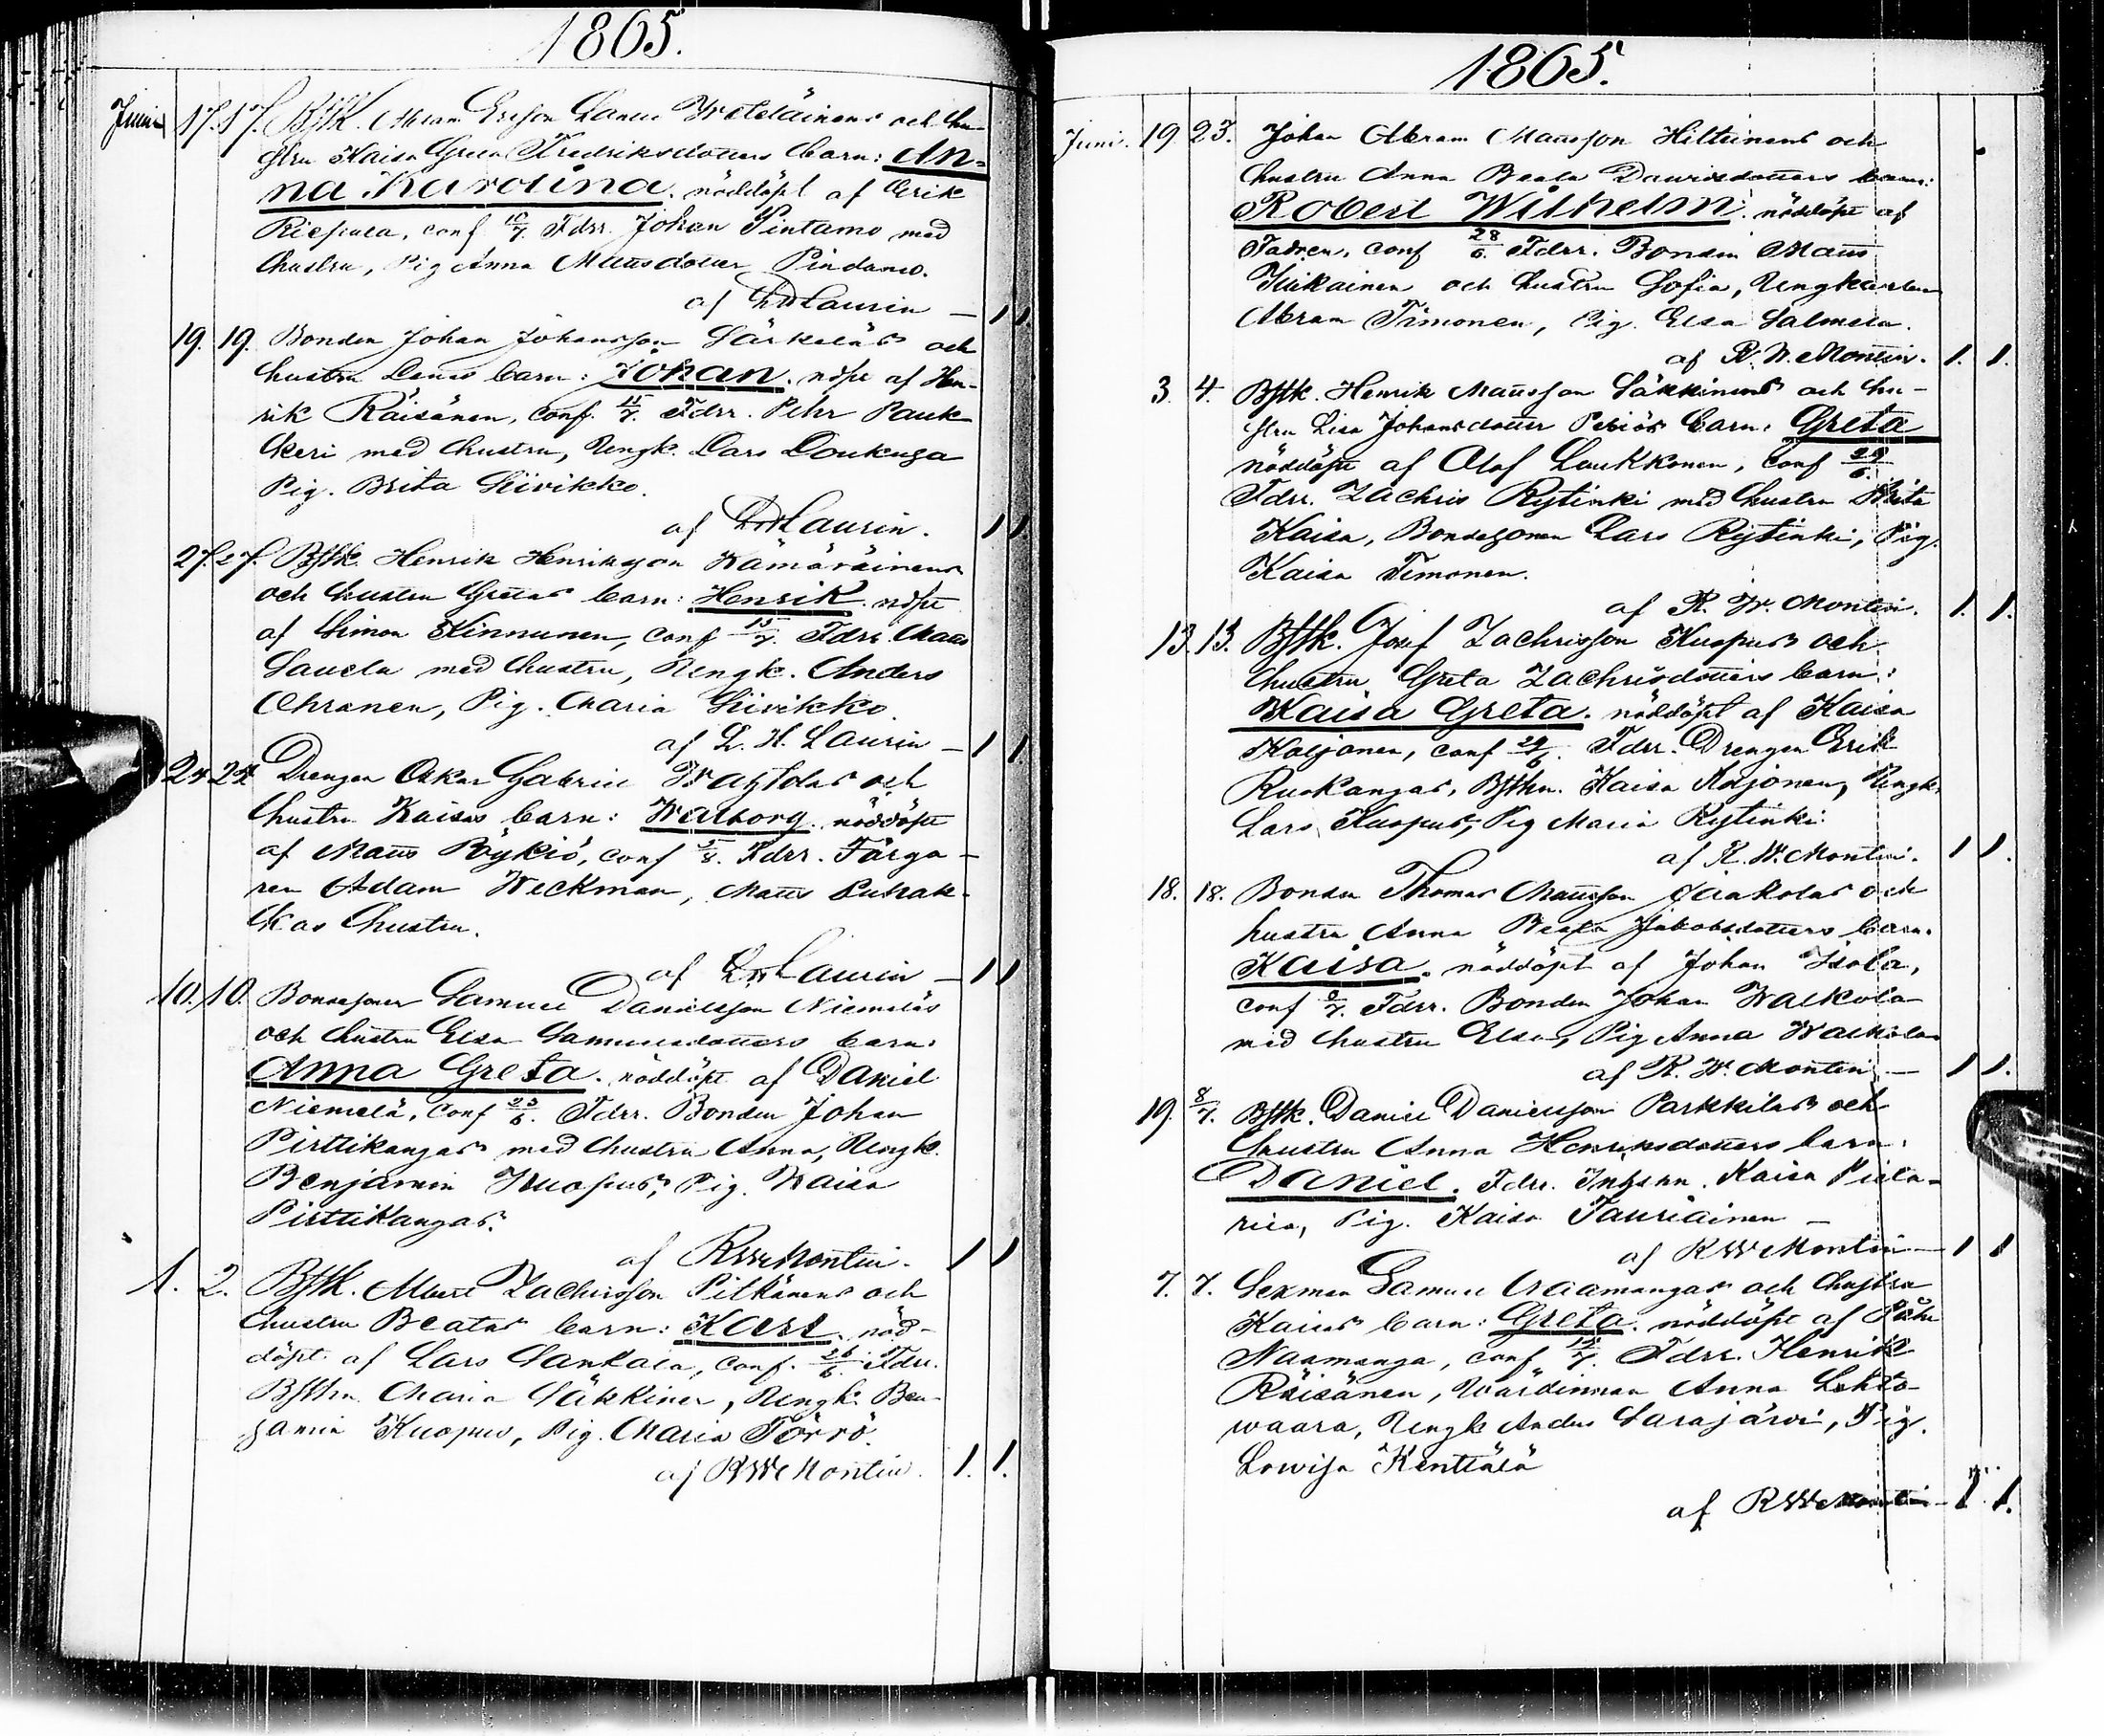 1865.
Juni 17. 17. Bstk. Abram Ersson Weteläinens och hu-
stru Kaisa Greta Fredriksdotters barn: An-
na Karolina. nöddöpt af Erik
conf 10/7. Fdrr. Johan Pintamo med
hustru, Pig Anna Mattsdotter Pindamo.
af LHLaurin — 1 1
19. 19. Bonden Johan Johansson Särkeläs och
hustru Lenas barn: Johan. ndpt af Hen-
rik Räisänen, conf. 15/7. Fdrr. Pehr Pauk-
keri med hustru, Ungk. Lars Loukusa
Pig. Brita Siivikko.
af LHLaurin. 1 1
27. 27. Bstk. Henrik Henriksson Kämäräinens
och hustru Gretas barn: Henrik. ndpt
af Simon Kinnunen, conf 15/7. Fdrr. Matts
Saucla med hustru, Ungk. Anders
Ohranen, Pig. Maria Siivikko.
af L. H. Laurin — 1 1
24 24 Drengen Oskar Gabriel och
hustru Kaisas barn: Walborg. nöddöpt
af Matts Pöykiö, conf 5/8. Fdrr. Färga-
ren Adam Weckman, Matts Puhak-
kas hustru.
af LHLaurin — 1 1
10. 10. Bondesonen Samuel Danielsson Niemeläs
och hustru Elsa Samuelsdotters barn:
Anna Greta. nöddöpt af Daniel
Niemelä, conf 25/6. Fdrr. Bonden Johan
Pirttikangas med hustru Anna, Ungk.
Benjamin Kuopus, Pig. Kaisa
Pirttikangas.
af RWMontin. 1 1
1. 2. Bstk. Albert Zachrisson Pitkänens och
hustru Beatas barn: Karl. nöd-
döpt af Lars Sankala, conf. 26/6. Fdrr.
Bsthn Maria Säkkinen, Ungk. Ben-
jamin Kuopus, Pig. Maria Törrö.
af RWMontin. 1. 1.
1865.
Juni. 19. 23. Johan Abram Mattsson Hiltunens och
hustru Anna Beata Davidsdotters barn:
Robert Wilhelm. nöddöpt af
Fadren, conf 28/6. Fdrr. Bonden Matts
och hustru Sofia, Ungkarlen
Abram Timonen, Pig. Elsa Salmela.
af R. W. Montin. 1. 1.
3. 4. Bstk. Henrik Mattsson Säkkinens och hu-
stru Lisa Johansdotter Periös barn: Greta
nöddöpt af Olof Laukkonen, conf 29/6.
Fdrr. Zachris Rytinki med hustru Brita
Kaisa, Bondesonen Lars Rytinki, Pig.
Kaisa Timonen.
af R. W. Montin. 1. 1.
13. 13. Bstk. Josef Zachrisson Kuopus och
hustru Greta Zachrisdotters barn:
Kaisa Greta. nöddöpt af Kaisa
Koljonen, conf 29/6. Fdrr. Drengen Erik
Ruokangas, Bsthn. Kaisa Koljonen, Ungk.
Lars Kuopus, Pig Maria Rytinki.
af R. W. Montin. 1 1.
18. 18. Bonden Thomas Mattsson Jaakolas och
hustru Anna Beata Jakobsdotters barn.
Kaisa. nöddöpt af Johan Isola,
conf 9/7. Fdrr. Bonden Johan Walkola
med hustru Elsa, Pig Anna Walkola
af R. W. Montin — 1 1.
19. 8/7. Bstk. Daniel Danielsson Parkkilas och
hustru Anna Henriksdotters barn:
Daniel. Fdrr. Inhshn. Kaisa Pieta-
rila, Pig. Kaisa Tauriainen —
af RWMontin — 1 1
7. 7. Sexman Samuel Naamangas och hustru
Kaisas barn: Greta. nöddöpt af Pehr
Naamanga, conf 15/7. Fdrr. Henrik
Räisänen, Wärdinnan Anna Lehto-
waara, Ungk Anders Sarajärvi, Pig.
Lowisa Kenttälä
af RWMontin — 1. 1.